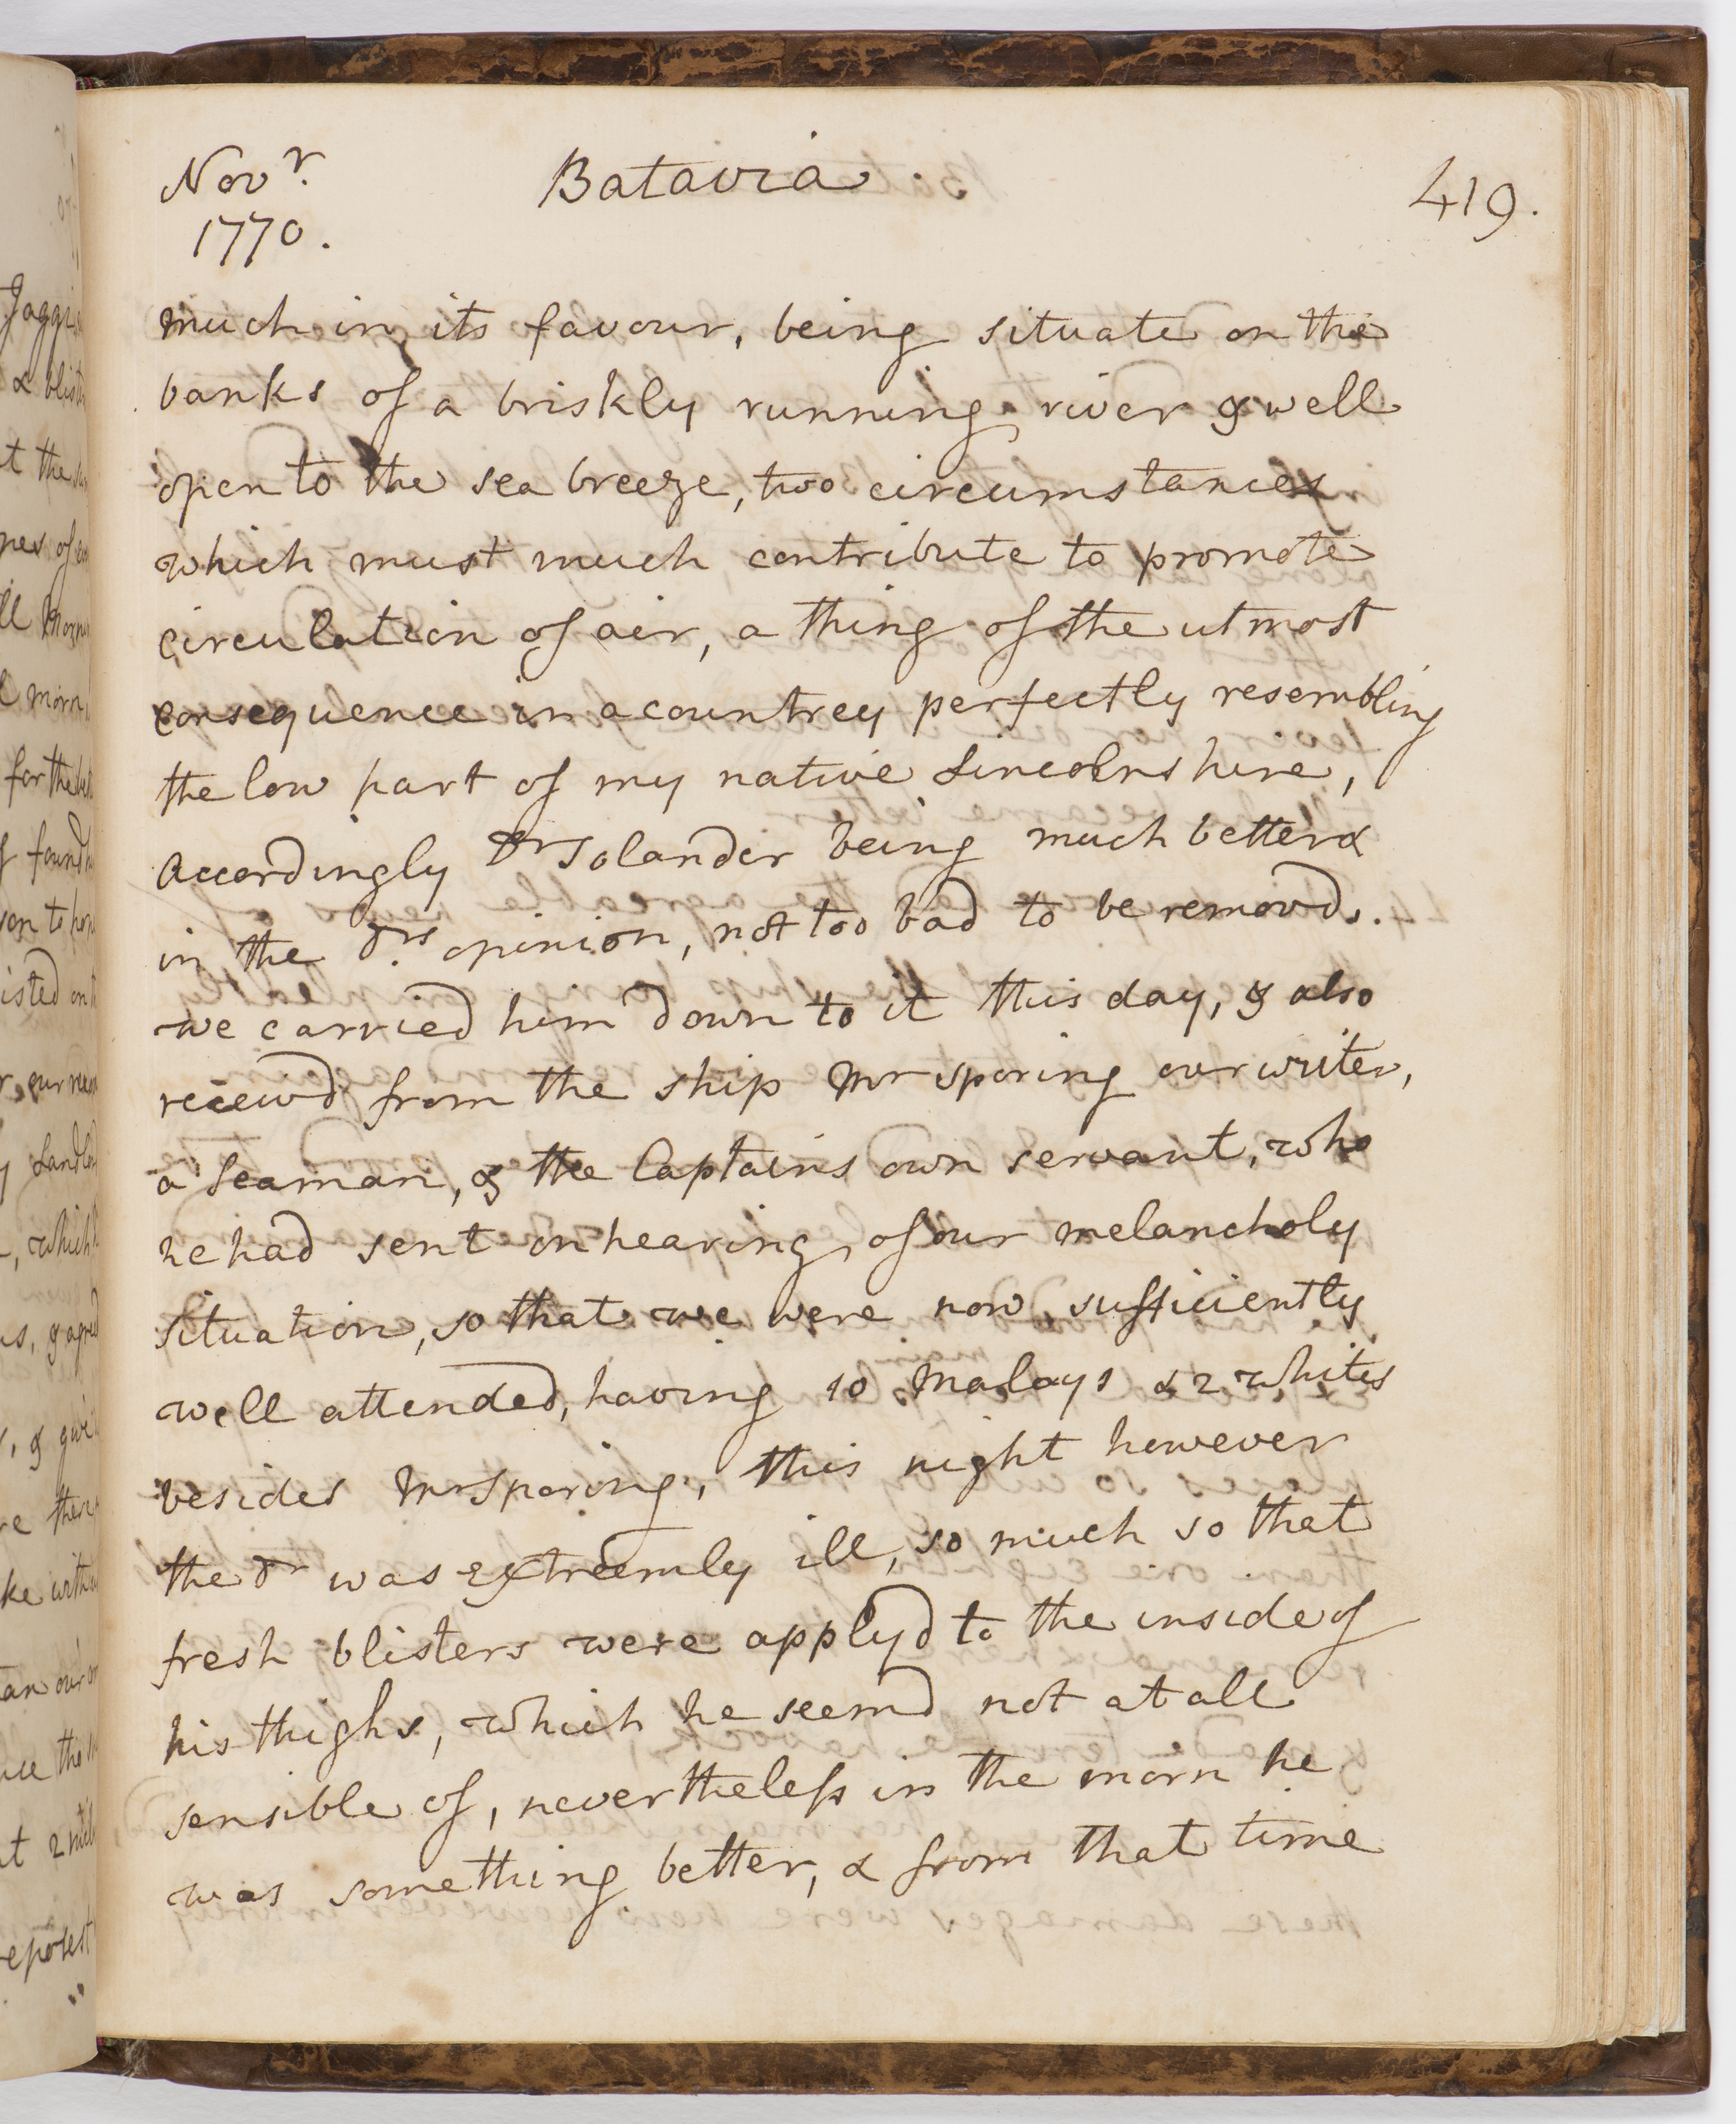 Novr.
1770.
Batavia.
419.
much in its favour, being situate on the
banks of a briskly running river & well
open to the sea breeze, two circumstances
which must much contribute to promote
circulation of air, a thing of the utmost
consequence in a countrey perfectly resembling
the low part of my native Lincolnshire,
Accordingly Dr Solander being much better &
in the Drs. opinion, not too bad to be removd.
we carried him down to it this day, & also
receivd from the ship Mr Sporing our writer,
a Seaman, & the Captains own servant, who
he had sent on hearing of our melancholy
situation, so that we were now sufficiently
well attended, having 10 Malays & 2 whites
besides Mr Sporing, this night however
the Dr was extreemly ill, so much so that
fresh blisters were applyd to the inside of
his thighs, which he seemd not at all
sensible of, nevertheless in the morn he
was something better, & from that time